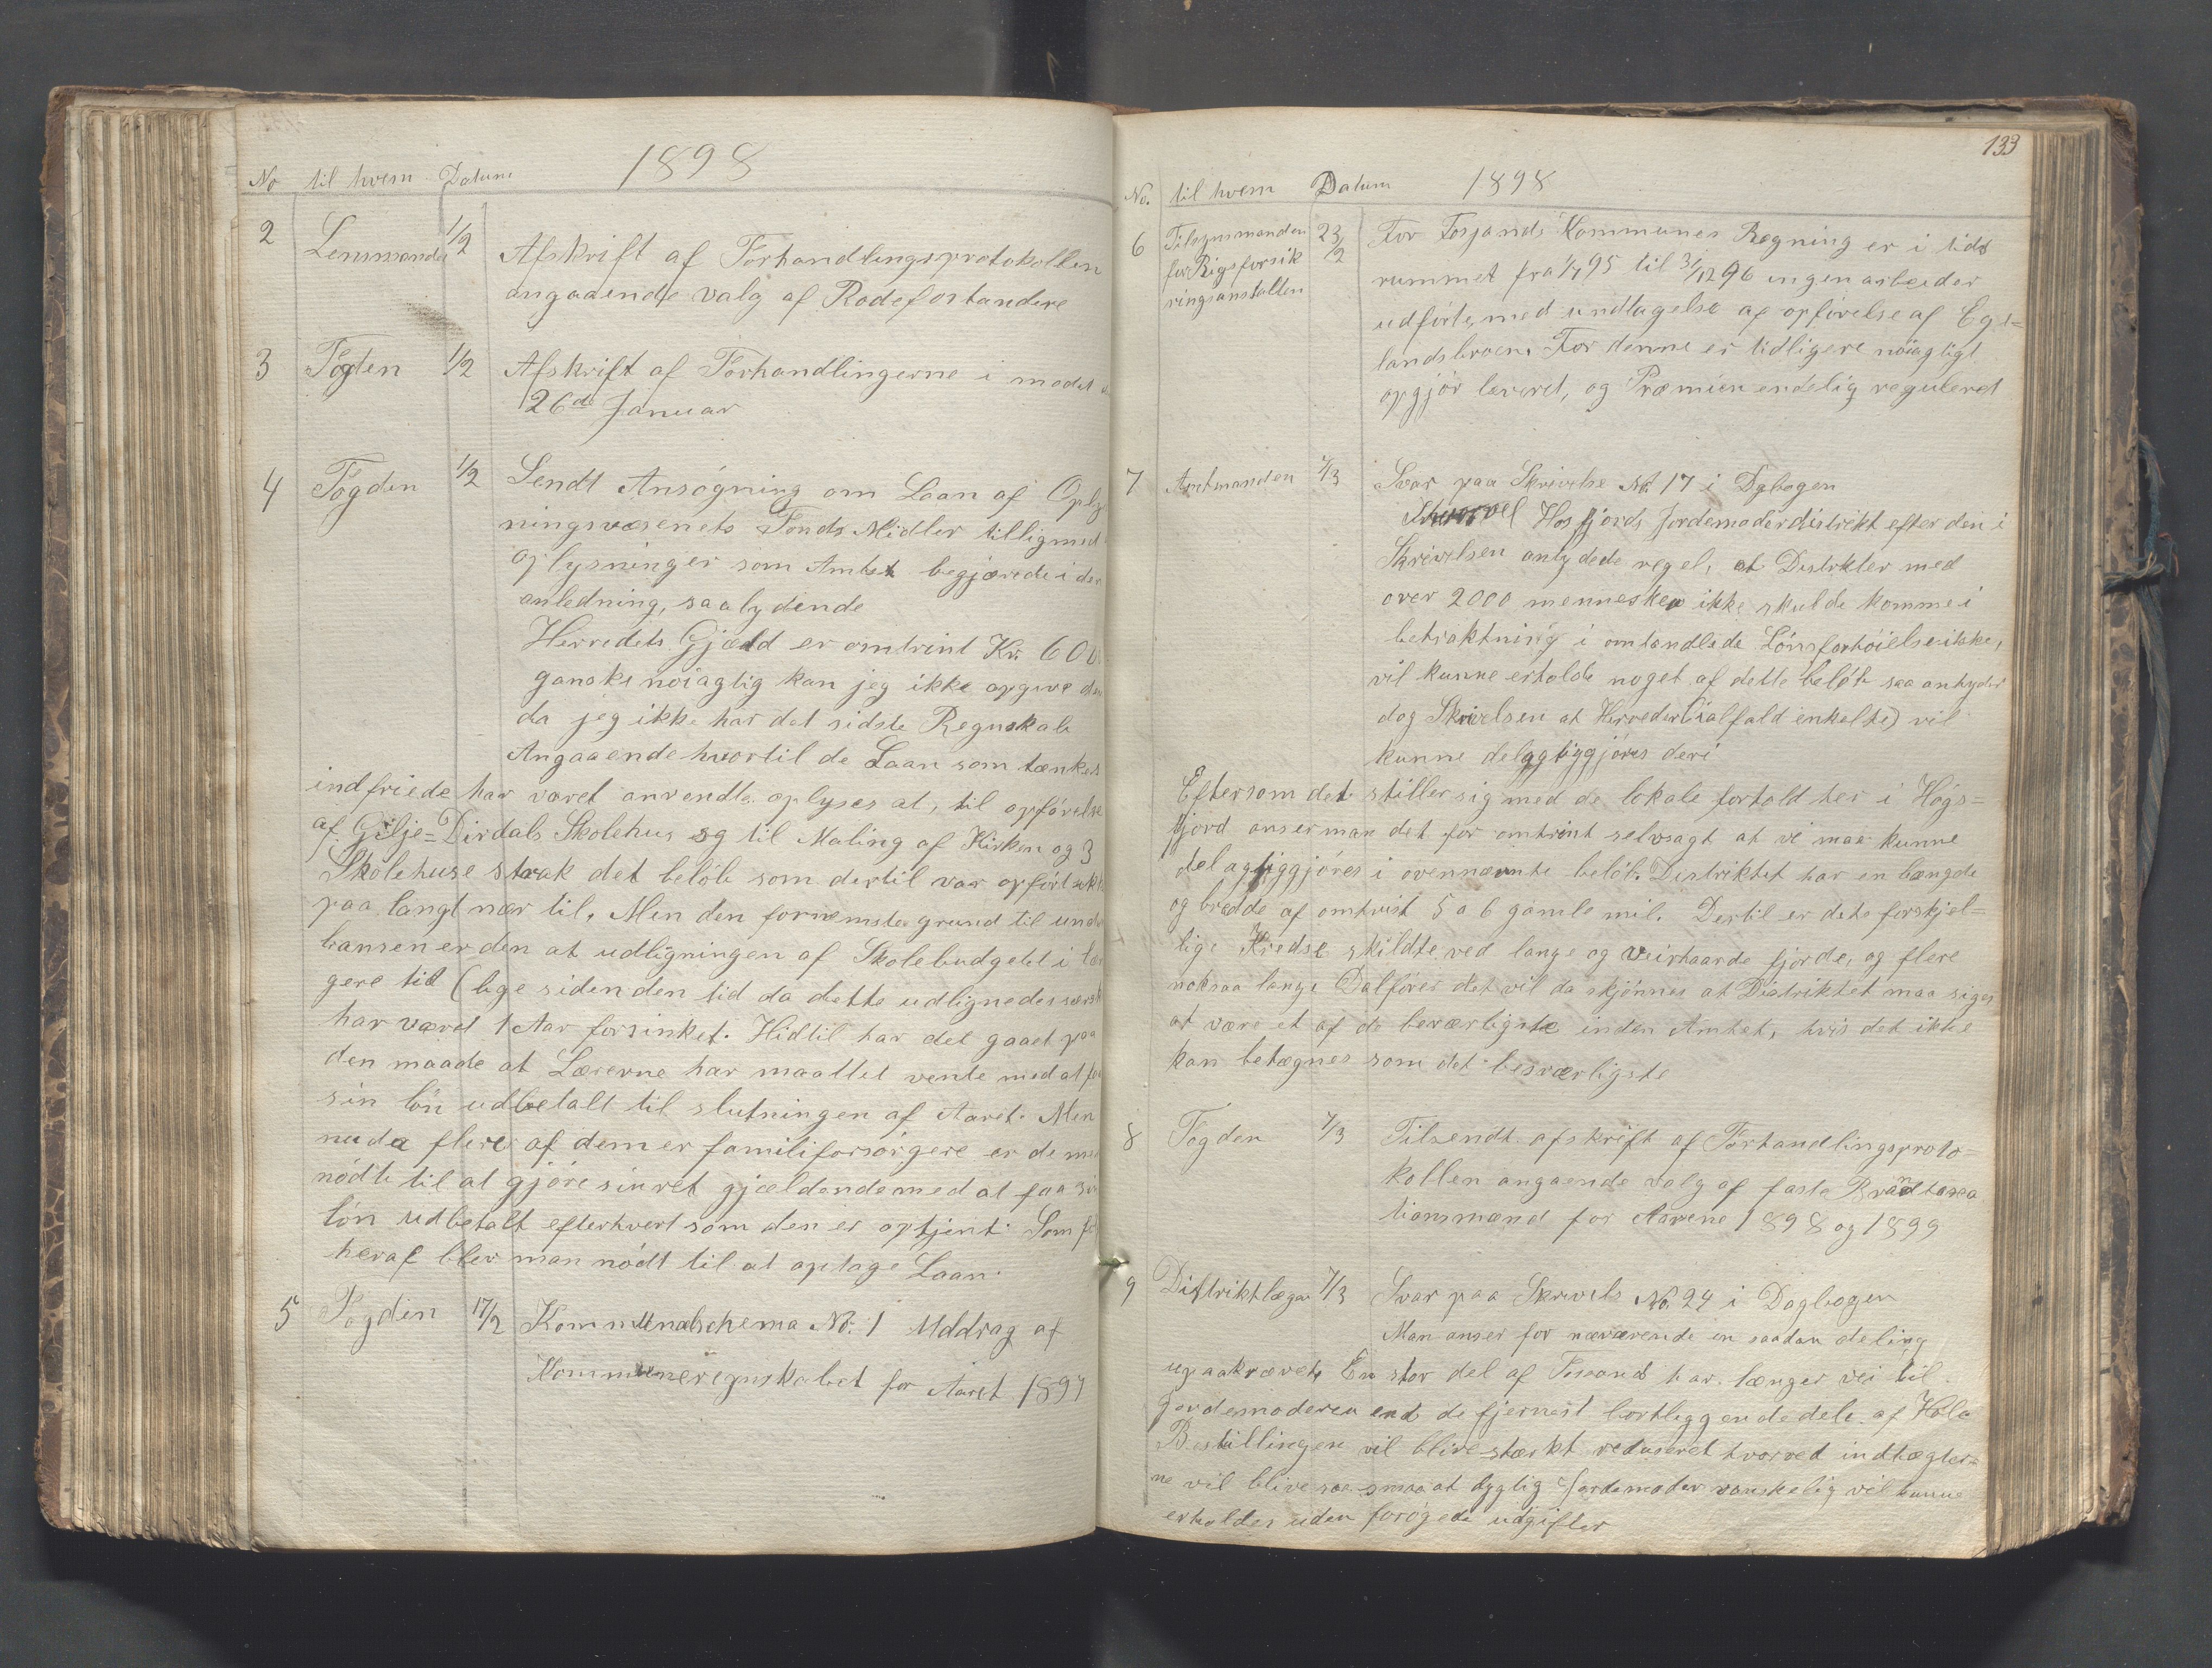 1898
No til hvem Datum
2 Lensmanden 1/2 Afskrift af Forhandlingsprotokollen
angaaende valg af Rodeforstandere
3 Fogden 1/2 Afskrift af Forhandlingerne i mødet
26de Januar
4 Fogden 1/2 Sendt Ansøgning om Laan af Oply
ningsvæsenets Fonds Midler tilligemed
oplysninger som Amtet begjærede i den
anledning, saalydende
Herredets Gjæld er omtrint Kr. 600
ganske nöiagtig kan jeg ikke opgive den
da jeg ikke har det sidste Regnskab
Angaaende hvortil de Laan som tænkes
indfriede har været anvendte oplyses at, til opförelse
af Gilje=Dirdals Skolehus og til Maling af Kirken og 3
Skolehuse strak det belöb som dertil var opfört ikke
paa langt nær til. Men den fornemste grund til und
bansen er den at udligningen af Skolebudgettet i læn
gere tid (lige siden den tid da dette udlignedes særsk
har værd 1 Aar forsinket. Hidtil har det gaaet paa
den maade at Lærerne har maattet vente med at faa
sin lön udbetalt til slutningen af Aaret. Men
nu da flere af dem er familiforsörgere er de
nödte til at gjöre sin ret gjældende med at faa sin
lön udbetalt efterhvert som den er optjent. Som föl
heraf blev man nödt til at optage Laan.
5 Fogden 17/2 Kommunalschema No. 1 Uddrag af
Kommuneregnskabet for Aaret 1897
133
No. til hvem Datum 1898
6 Tilsynsmanden
for Rigsforsik
ringsanstalten 23/2 For Fosjands Kommunes Regning er i tids
rummet fra 1/7 95 til 31/12 96 ingen arbeider
udförte, med undtagelse af opförelse af Egs=
landsbroen. For denne er tidligere nöiagtigt
opgjör leveret, og Præmien endelig reguleret
7 Amtmanden 7/3 Svar paa Skrivelse No. 17 i Dgbogen
Skjönt vel Høsfjords Jordemoderdistrikt efter den i
Skrivelsen antydede regel, at Distrkter med
over 2000 mennesker ikke skulde komme i
betraktning i omhandlede Lönsforhöielse ikke,
vil kunne erholde noget af dette belöb saa antyder
dog Skrivelsen at Herreder (ialfald enkelte) vil
kunne delagtiggjöres deri
Eftersom det stiller sig med de lokale forhold her i Høgs=
fjord anser man det for omtrint selvsagt at vi maa kunne
delagtiggjöres i ovennævnte belöb. Distriktet har en længde
og bredde af omtrint 5 a 6 gamle mil. Dertil er dets forskjel=
lige Kredse skildte ved lange og veirhaarde fjorde, og flere
noksaa lange Dalförer det vil da skjönnes at Distriktet maa siges
at være et af de besværligste inden Amtet, hvis det ikke
kan betegnes som det besværligste
8 Fogden 7/3 Tilsendt afskrift af Forhandlingsproto=
kollen angaende valg af faste Brandtaxa
tionsmænd for Aarene 1898 og 1899
9 Distriktlægen 7/3 Svar paa Skrivels No. 24 i Dagbogen
Man anser for nærværende en saadan deling
upaakrævet. En stor del af Fossand har længer vei til
Jordemoderen end de fjernest bortliggende dele af Hole
Bestillingen vil blive stærkt reduseret hvorved indtægter=
ne vil blive saa smaa at dygtig Jordemoder vanskelig vil kunne
erholdes uden forögede udgifter